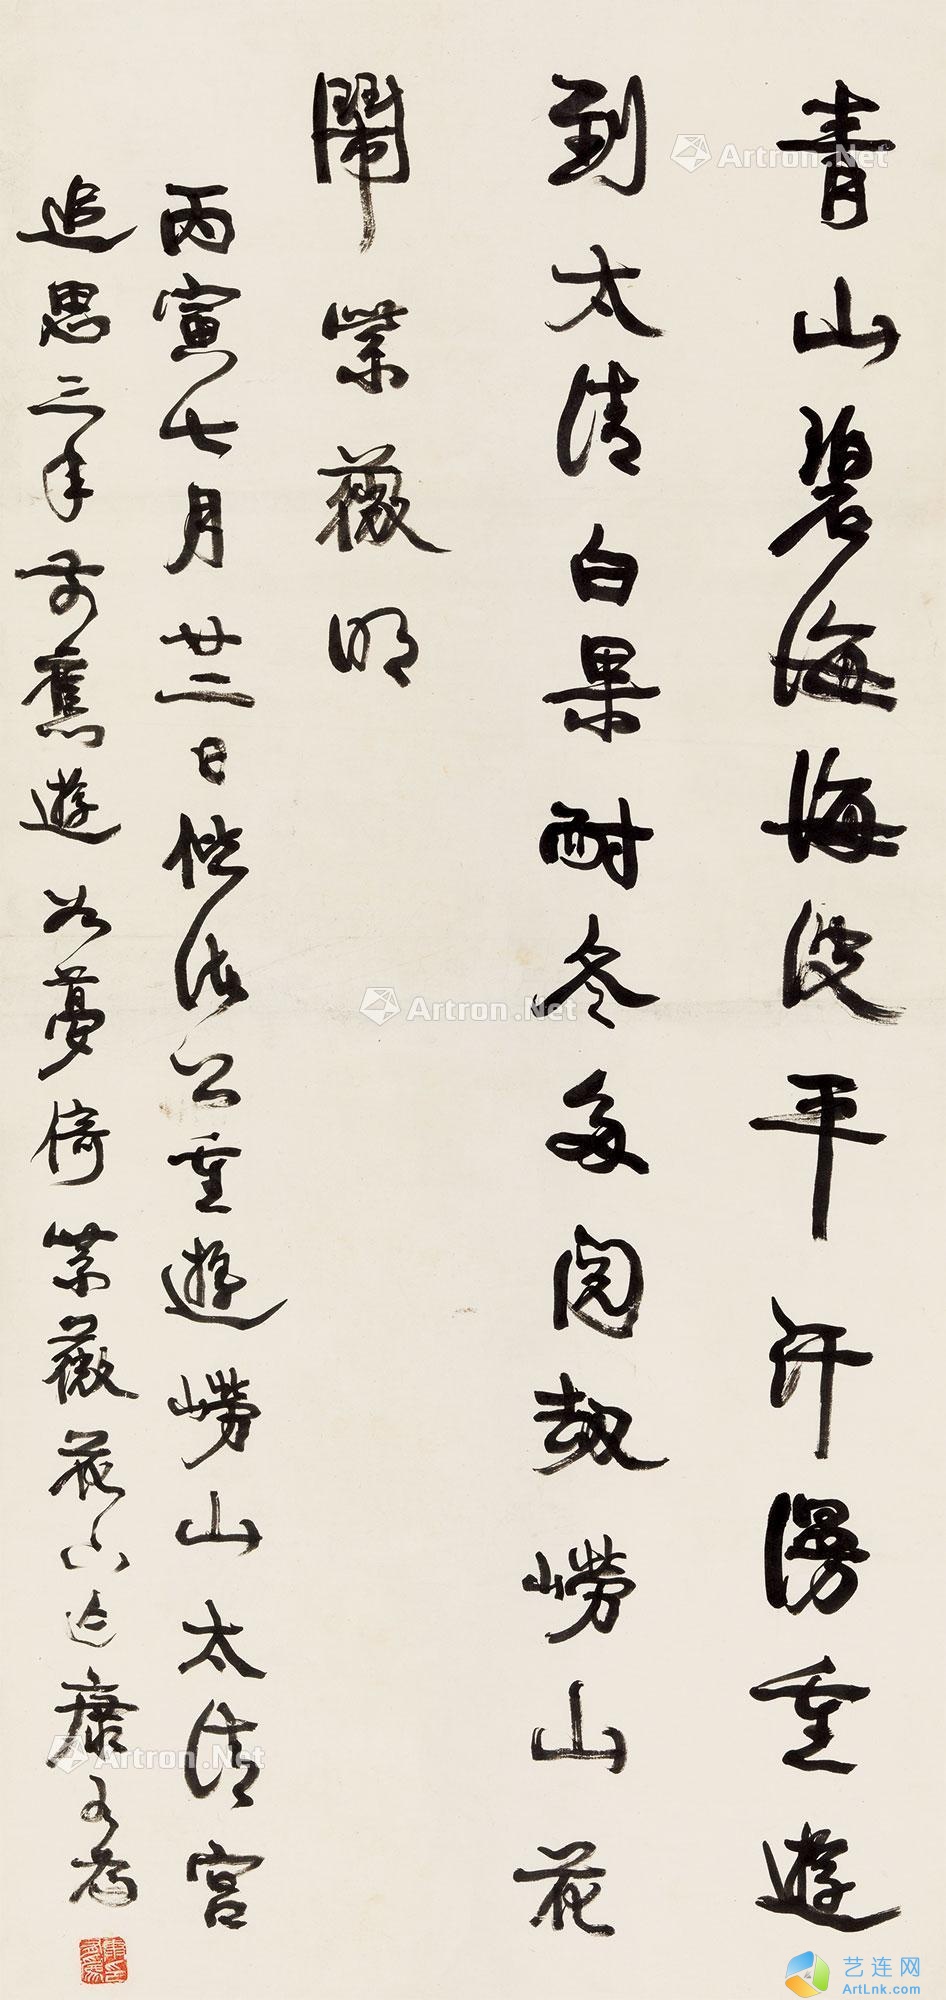 青山碧海海波平汗漫重遊
到太清白果耐冬多閱劫嶗山花
鬧紫薇明
丙寅七月廿二日偕公重遊嶗山太清宮
追思三年前舊遊如夢倚紫薇花康有為
Artron.Net
Artron.Net
Artron.Net
艺连网
ArtLnk.com